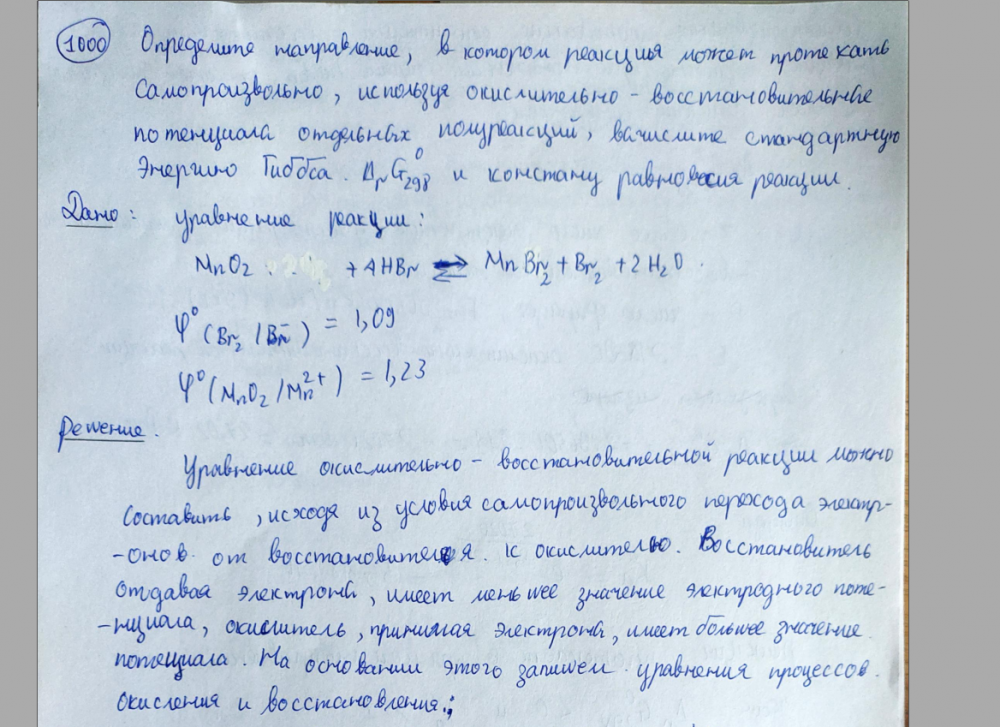 1000 Определите направление, в котором реакция может протекать
самопроизвольно, используя окислительно - восстановительные
потенциала отдельных полуреакций, вычислите стандартную
Энергию Гиббса. ΔrG⁰298 и констану равновесия реакции.
Дано: уравнение реакции:
MnO2 + 4HBr ⇌ MnBr2 + Br2 + 2H2O.
φ⁰(Br2/Br⁻) = 1,09
φ⁰(MnO2/Mn²⁺) = 1,23
Решение.
Уравнение окислительно - восстановительной реакции можно
составить, исходя из условия самопроизвольного перехода электр-
-онов от восстановителя к окислителю. Восстановитель
отдавая электроны, имеет меньшее значение электродного поте-
-нциала, окислитель, принимая электроны, имеет большее значение
потенциала. На основании этого запишем уравнения процессов
окисления и восстановления: